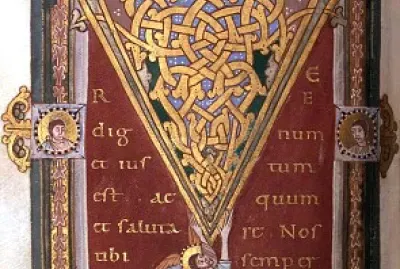 V E
R E
dig num
et ius tum
est. ae quum
et saluta re. Nos
tibi semper